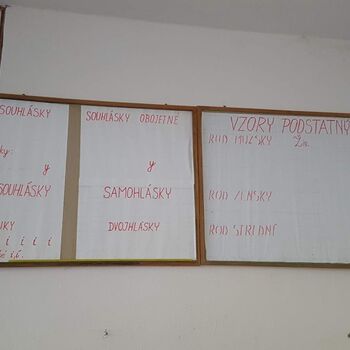 SOUHLÁSKY
ky:
y
SOUHLÁSKY
í í í í
SOUHLÁSKY OBOJETNÉ
y
SAMOHLÁSKY
DVOJHLÁSKY
VZORY PODSTATNÝ
ROD MUŽSKÝ Živ.
ROD ŽENSKÝ
ROD STŘEDNÍ